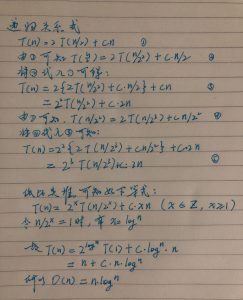 递归关系式
T(n) = 2T(n/2) + cn ①
由①可知 T(n/2) = 2T(n/2²) + c·n/2 ②
将②代入①可得:
T(n) = 2{2T(n/2²) + c·n/2} + cn
= 2²T(n/2²) + c·2n ③
由①可知, T(n/2²) = 2T(n/2³) + c·n/2² ④
将④代入③可知:
T(n) = 2²{2T(n/2³) + c·n/2²} + c·2n
= 2³T(n/2³) + c·3n ⑤
依次类推, 可知如下等式:
T(n) = 2ˣT(n/2ˣ) + c·xn (x∈Z, x≥1)
令 n/2ˣ = 1时, 有 x = logⁿ
T(n) = 2^logⁿ T(1) + c·logⁿ·n
= n + c·n·logⁿ
所以 O(n) = n·logⁿ